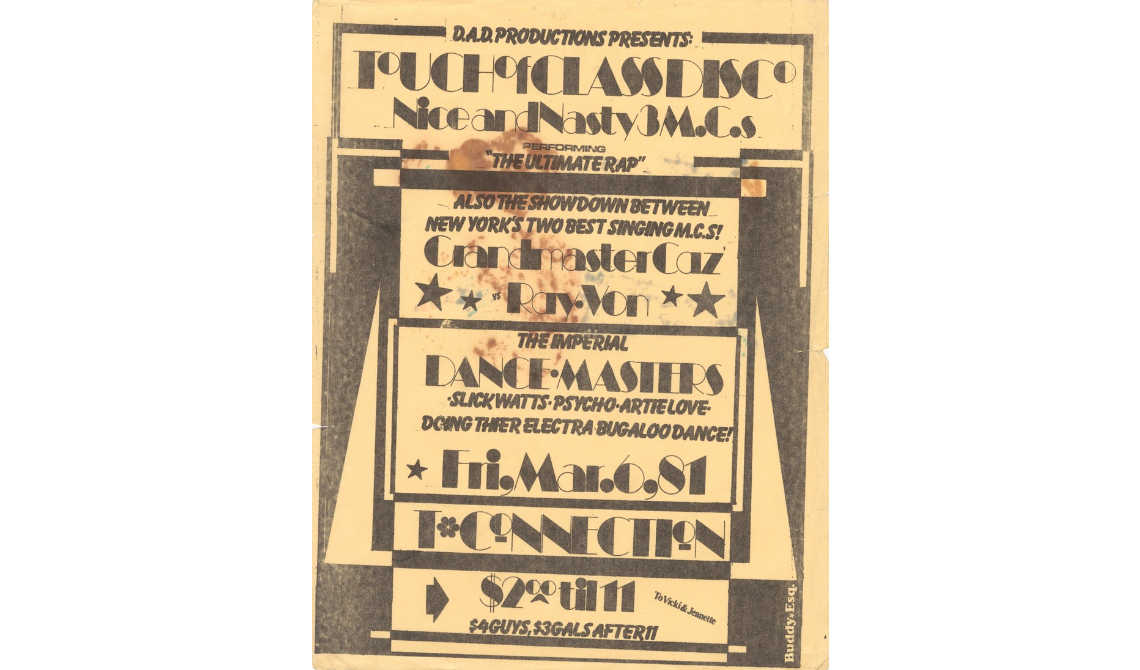 D.A.D. PRODUCTIONS PRESENTS:
ToUCHofCLASSDISCo
Nice and Nasty 3 M.C.s
PERFORMING
"THE ULTIMATE RAP"
ALSO THE SHOWDOWN BETWEEN
NEW YORK'S TWO BEST SINGING M.C.S!
Grandmaster Caz
vs Ray·Von
THE IMPERIAL
DANCE·MASTERS
·SLICK WATTS·PSYCHO·ARTIE LOVE·
DOING THIER ELECTRA BUGALOO DANCE!
Fri, Mar. 6, 81
T*CoNNECTIoN
$2.00 til 11
To Vicki & Jeanette
$4 GUYS, $3 GALS AFTER 11
Buddy·Esq.